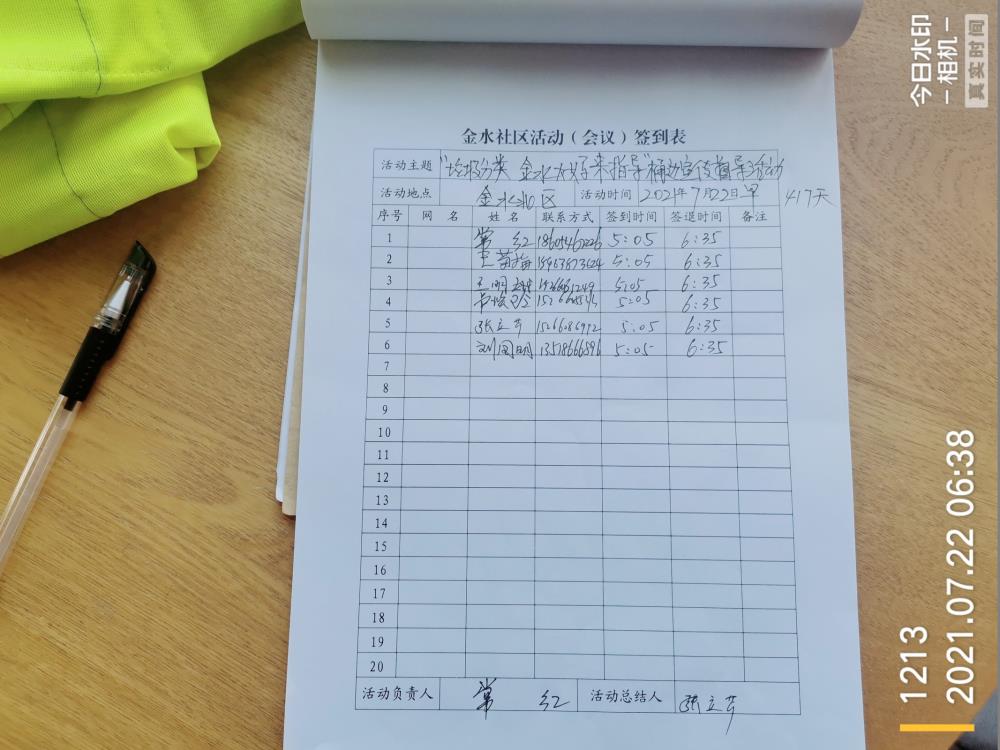 金水社区活动（会议）签到表
活动主题 "垃圾分类 金水大好 来指导"桶边宣传督导活动
活动地点 金水北区 活动时间 2021年7月22日早 417天
序号 网 名 姓 名 联系方式 签到时间 签退时间 备注
1 常 红 5:05 6:35
2 王 5:05 6:35
3 王明 5:05 6:35
4 5:05 6:35
5 张立芹 15266086912 5:05 6:35
6 刘国明 13518666596 5:05 6:35
7
8
9
10
11
12
13
14
15
16
17
18
19
20
活动负责人 常 红 活动总结人 张立芹
今日水印
相机
真实时间
1213
2021.07.22 06:38